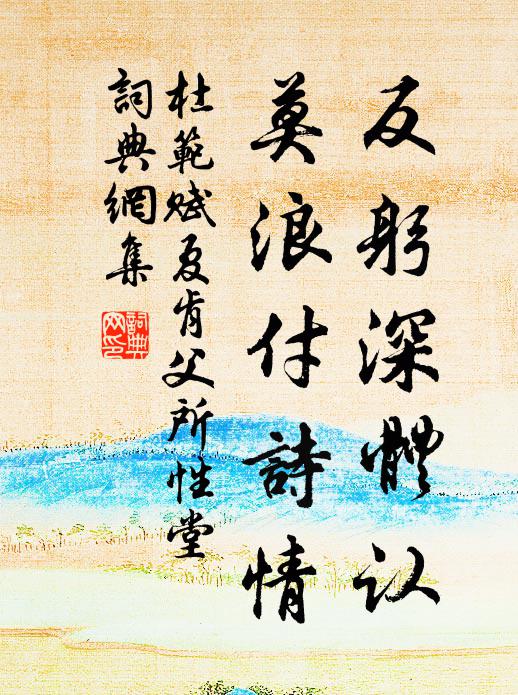 反躬深體认
莫浪付詩情
杜範賦夏肯父所性堂
詞典網集
詞典网印